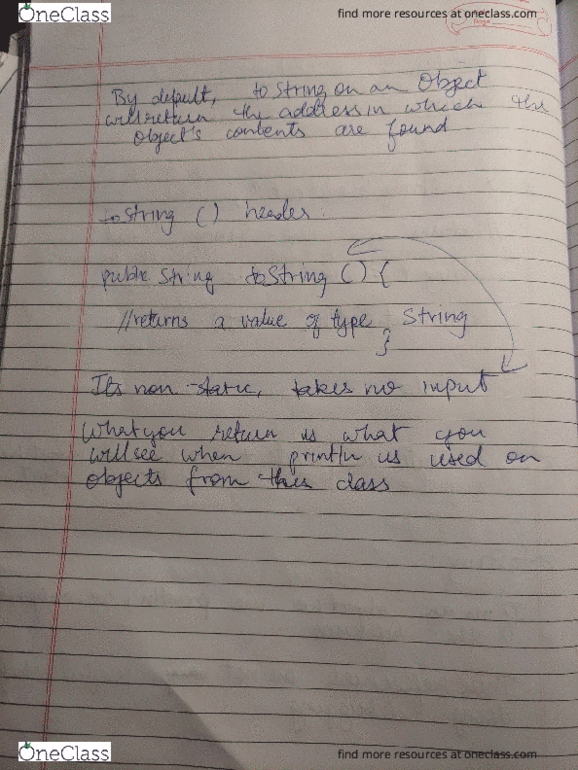 OneClass
find more resources at oneclass.com
By default, toString on an Object
will return the address in which the
object's contents are found
toString () header:
public String toString () {
//returns a value of type String
}
Its non-static, takes no input
What you return is what you
will see when println is used on
objects from this class
OneClass
find more resources at oneclass.com